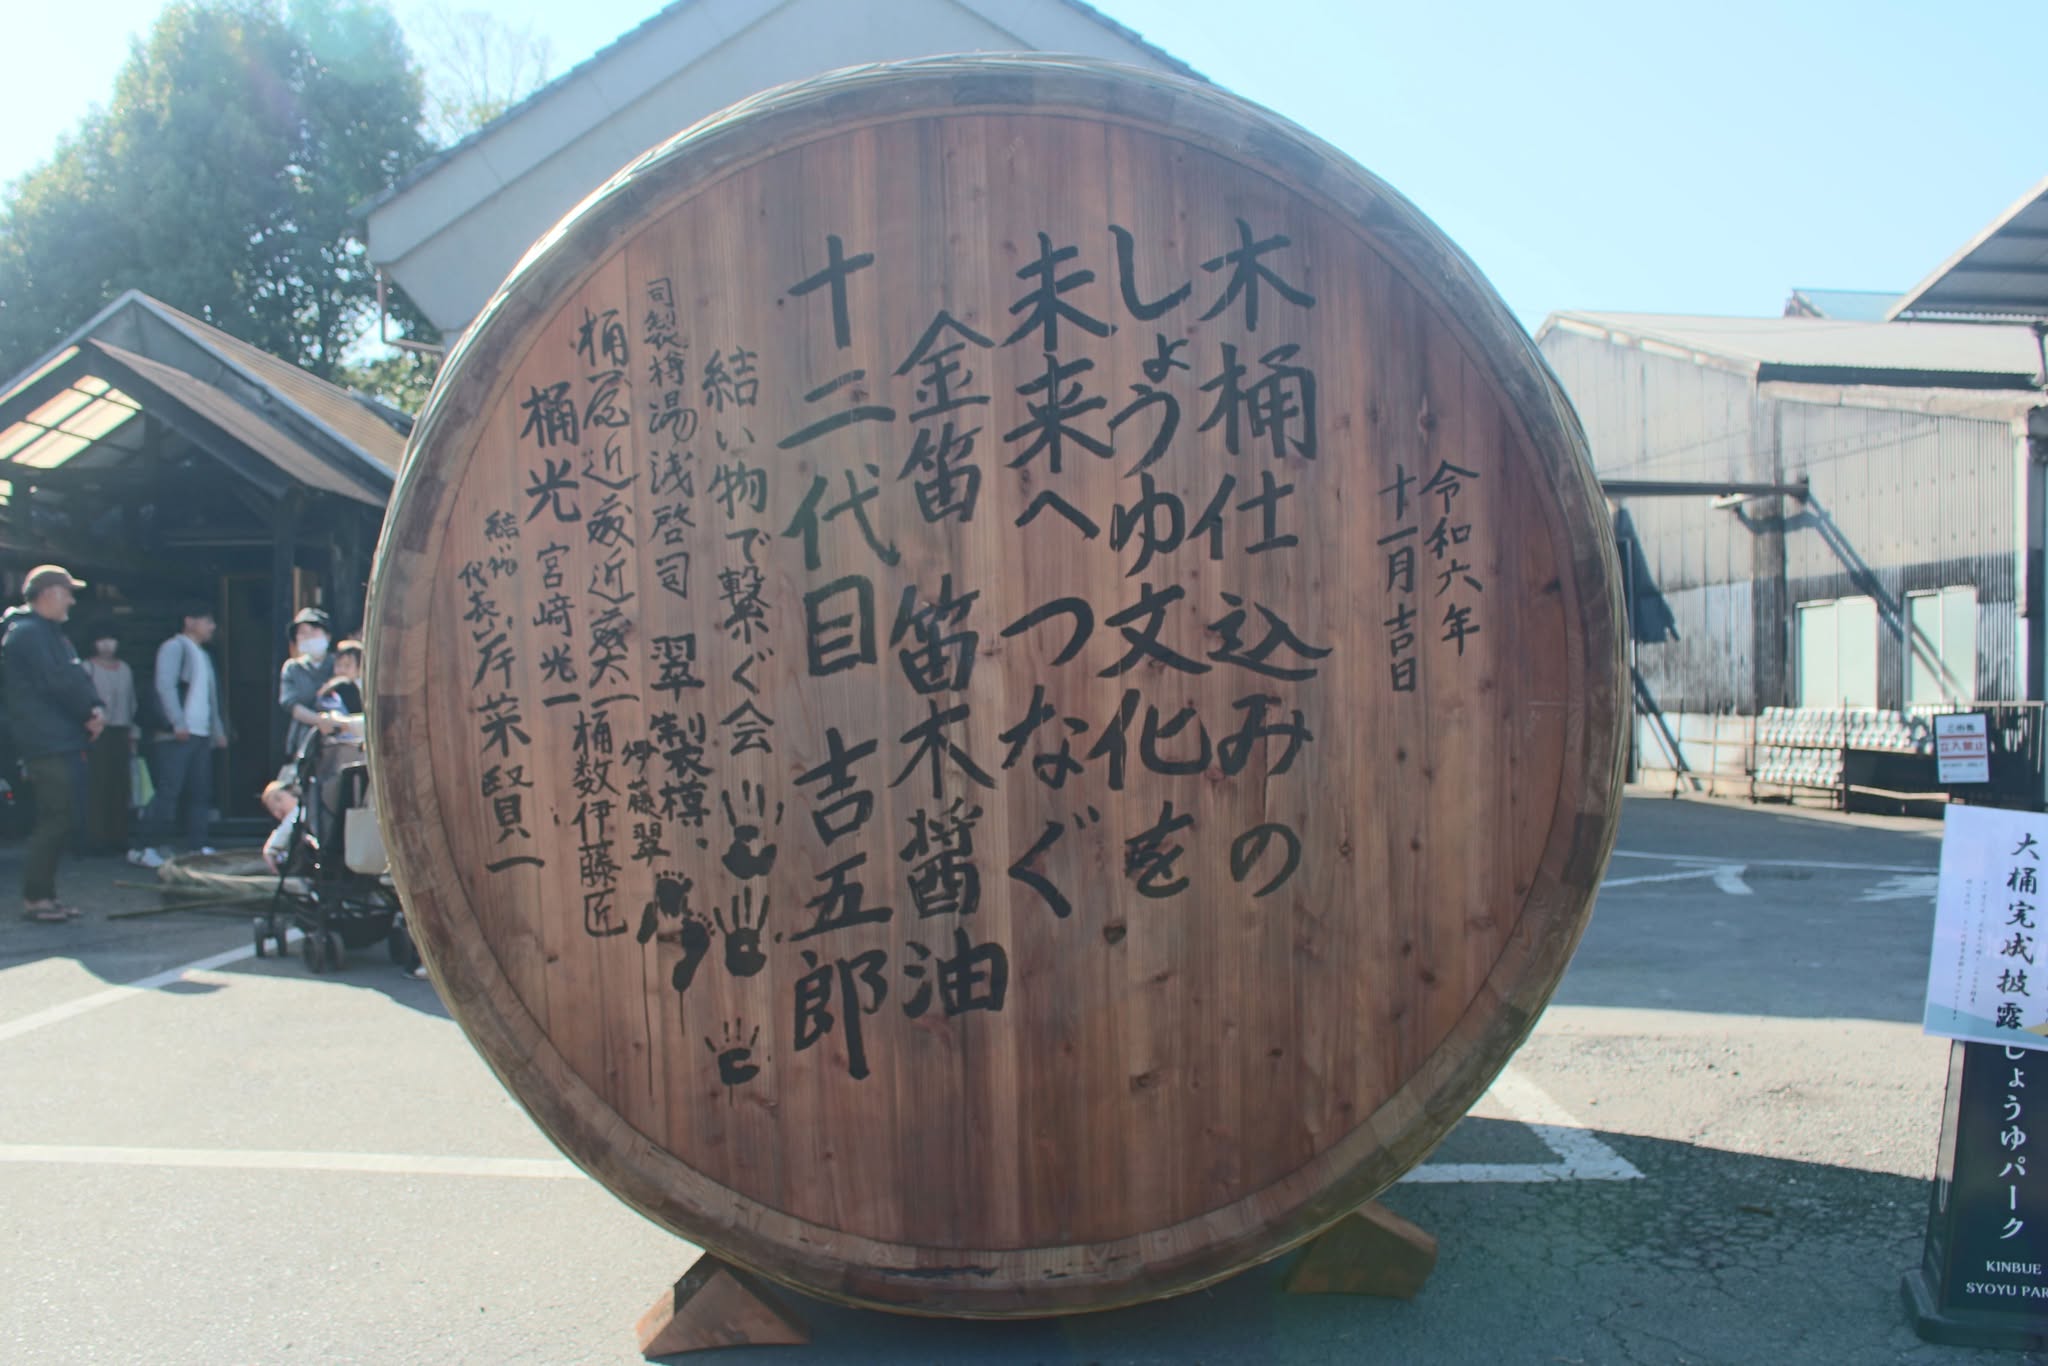 令和六年
十一月吉日
木桶仕込みの
しょうゆ文化を
未来へつなぐ
金笛 笛木醤油
十二代目 吉五郎
結い物で繋ぐ会
司製樽 湯浅啓司
翠 製樽
伊藤翠
桶尾近藤 近藤太一
桶数 伊藤匠
桶光 宮﨑光一
結い物
代表 山岸菜賢一
立入禁止
大桶完成披露
しょうゆパーク
KINBUE
SYOYU PAR